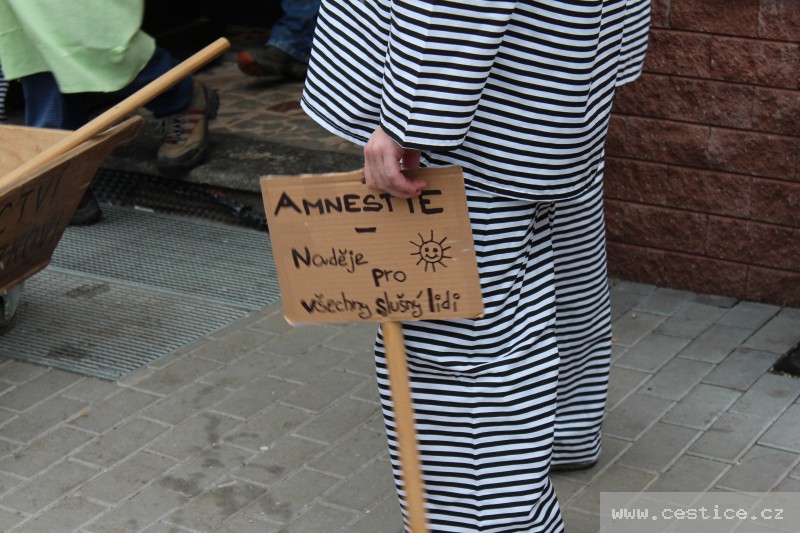 AMNESTIE
-
Naděje
pro
všechny slušný lidi
CTVÍ
www.cestice.cz